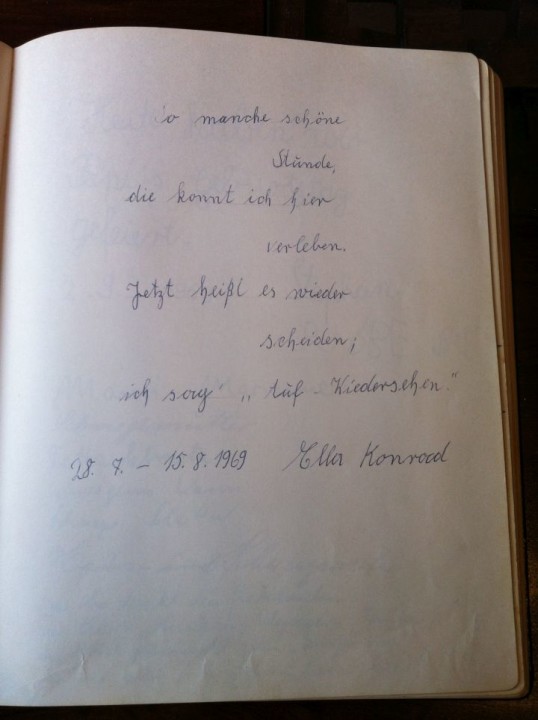 So manche schöne
Stunde,
die konnt ich hier
verleben.
Jetzt heißt es wieder
scheiden;
ich sag' „Auf-Wiedersehen."
28. 7. – 15. 8. 1969 Ella Konrad